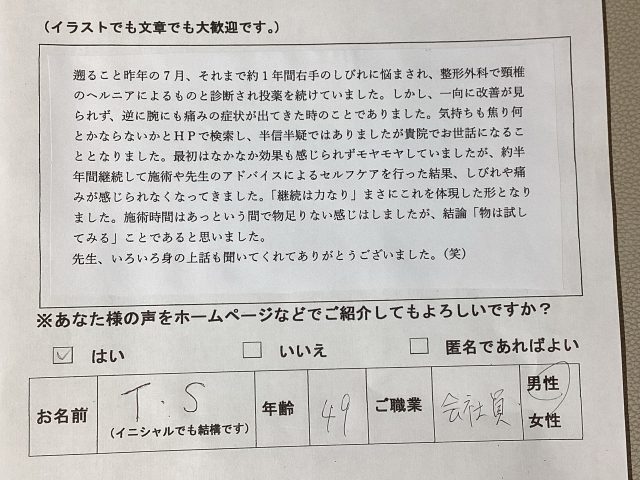 （イラストでも文章でも大歓迎です。）
遡ること昨年の７月、それまで約１年間右手のしびれに悩まされ、整形外科で頸椎
のヘルニアによるものと診断され投薬を続けていました。しかし、一向に改善が見
られず、逆に腕にも痛みの症状が出てきた時のことでありました。気持ちも焦り何
とかならないかとＨＰで検索し、半信半疑ではありましたが貴院でお世話になるこ
ととなりました。最初はなかなか効果も感じられずモヤモヤしていましたが、約半
年間継続して施術や先生のアドバイスによるセルフケアを行った結果、しびれや痛
みが感じられなくなってきました。「継続は力なり」まさにこれを体現した形となり
ました。施術時間はあっという間で物足りない感じはしましたが、結論「物は試し
てみる」ことであると思いました。
先生、いろいろ身の上話も聞いてくれてありがとうございました。（笑）
※あなた様の声をホームページなどでご紹介してもよろしいですか？
はい いいえ 匿名であればよい
お名前 T.S 年齢 49 ご職業 会社員 男性
（イニシャルでも結構です） 女性